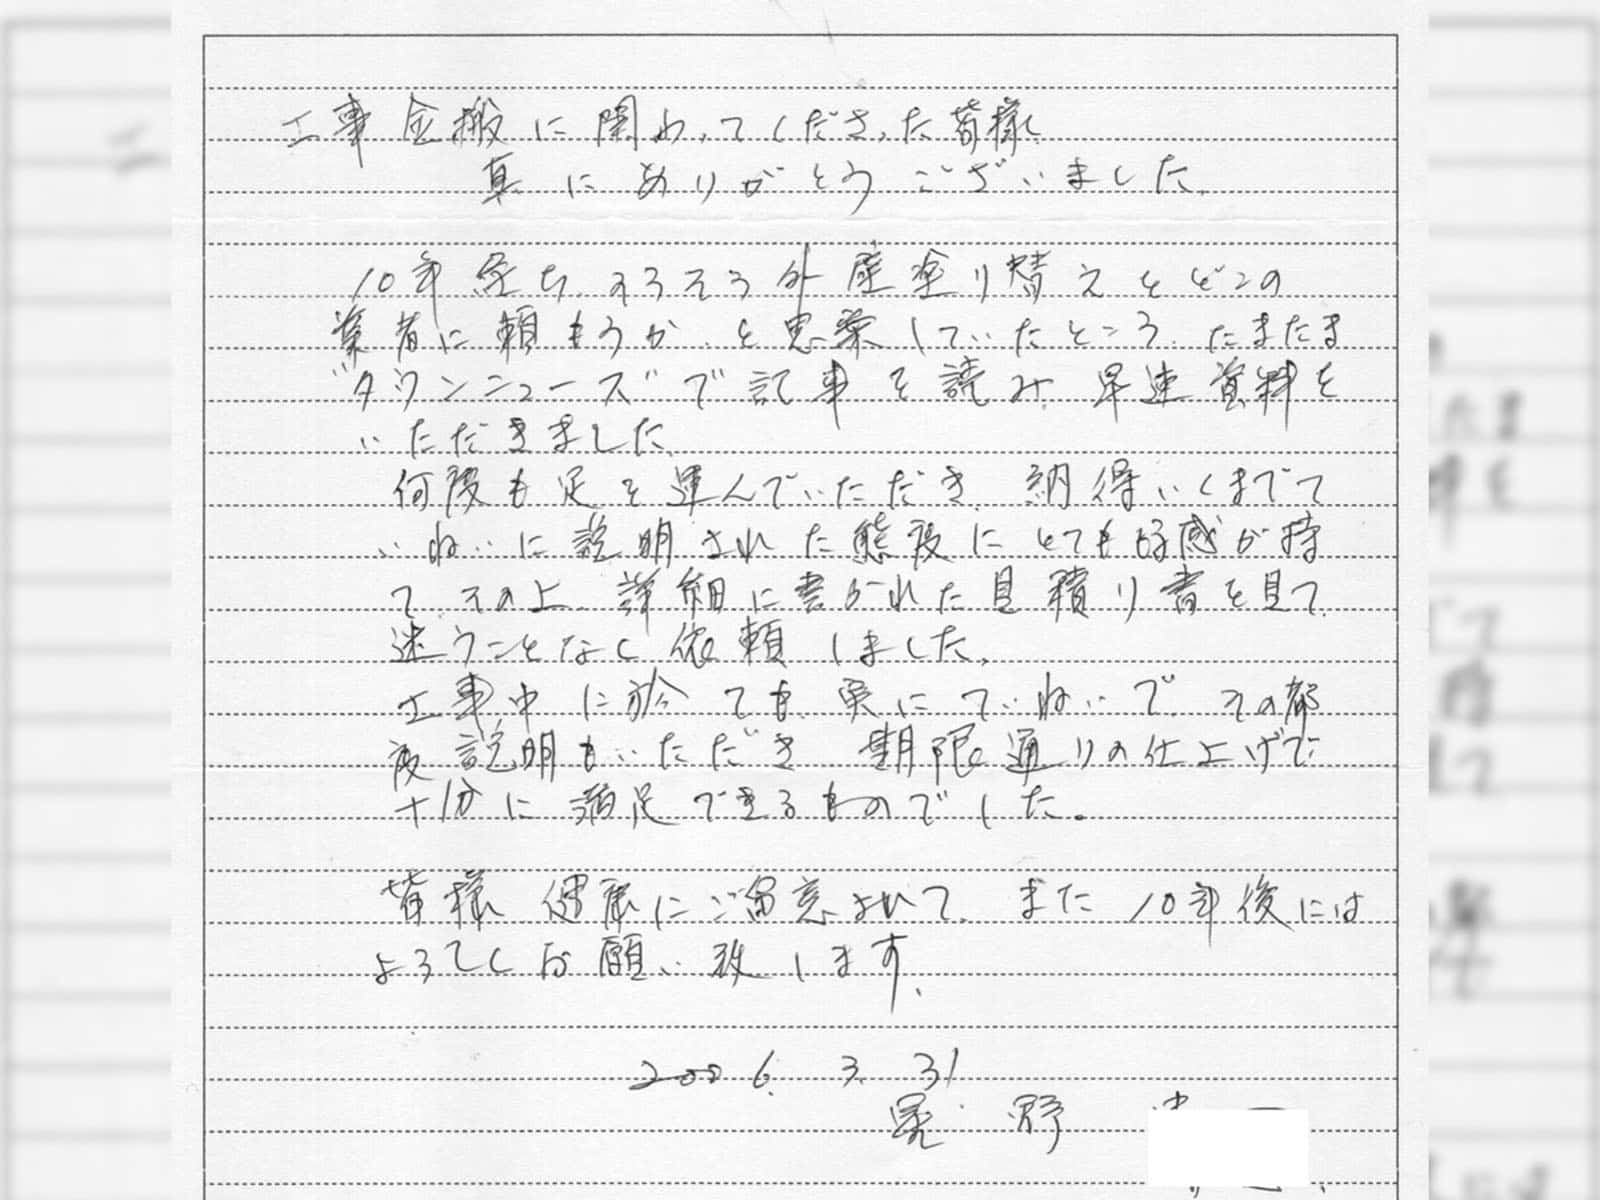 工事全搬に関わってくださった皆様
真にありがとうございました。
10年経ち、そろそろ外壁塗り替えをどこの
業者に頼もうか、と思案していたところ、たまたま
"タウンニューズ"で記事を読み、早速資料を
いただきました。
何度も足を運んでいただき、納得いくまでて
いねいに説明された態度にとても好感が持
て、その上、詳細に書かれた見積り書を見て、
迷うことなく依頼しました。
工事中に於ても、実にていねいで、その都
度説明もいただき、期限通りの仕上げで
十分に満足できるものでした。
皆様健康にご留意されて、また10年後には
よろしくお願い致します。
2006. 3. 31
野